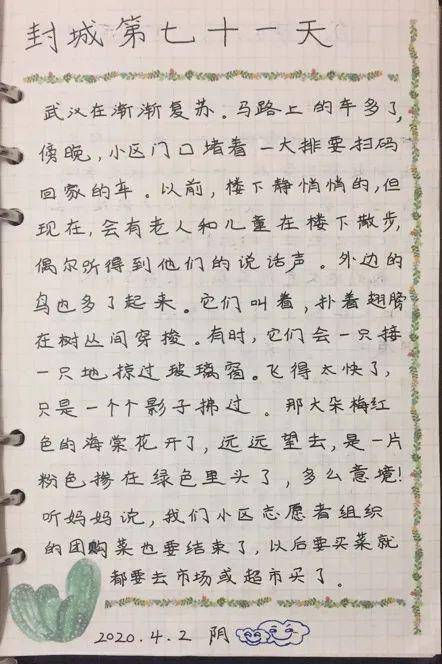 封城第七十一天
武汉在渐渐复苏。马路上的车多了,
傍晚,小区门口堵着一大排要扫码
回家的车。以前,楼下静悄悄的,但
现在,会有老人和儿童在楼下散步,
偶尔听得到他们的说话声。外边的
鸟也多了起来。它们叫着,扑着翅膀
在树丛间穿梭。有时,它们会一只接
一只地掠过玻璃窗。飞得太快了,
只是一个个影子拂过。那大朵梅红
色的海棠花开了,远远望去,是一片
粉色掺在绿色里头了,多么意境!
听妈妈说,我们小区志愿者组织
的团购菜也要结束了,以后要买菜就
都要去市场或超市买了。
2020.4.2 阴